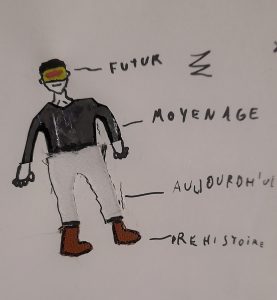 FUTUR
MOYENAGE
AUJOURDH'UI
PREHISTOIRE